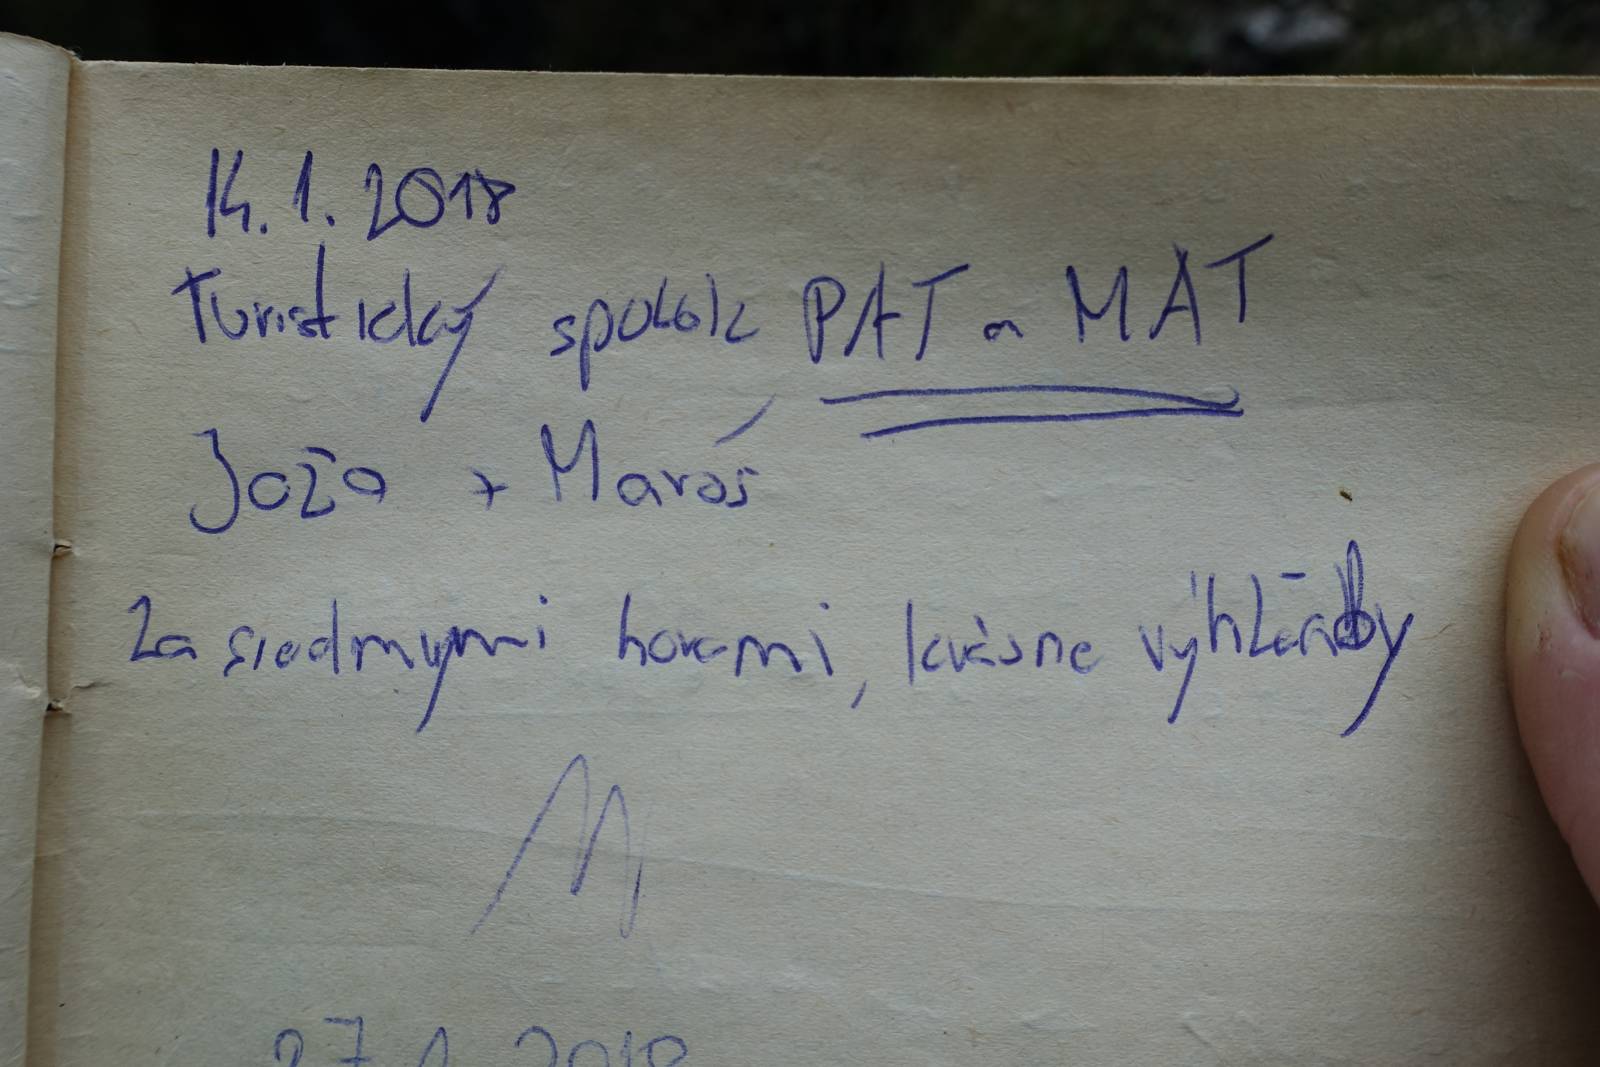 14.1.2018
Turistický spolok PAT a MAT
Jožo + Maroš
Za siedmymi horami, krásne výhľady
27.1.2018